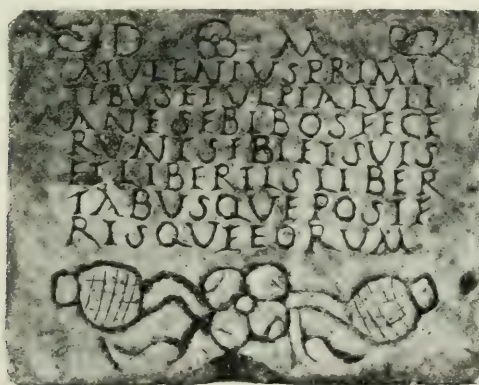 D M
ATULENIUSPRIMI
TIBUSETULPIALULLI
ANESEBIBOSFECE
RUNTSIBIETSUIS
ETLIBERTISLIBER
TABUSQUEPOSTE
RISQUEEORUM